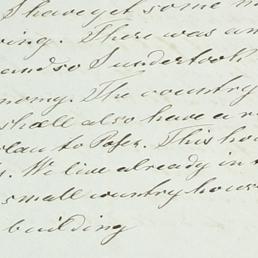 I have yet some m
ing. There was an
and so I undertook
nomy. The country
shall also have a r
plan to Pofer. This hou
s. We live already in t
small country hous
building